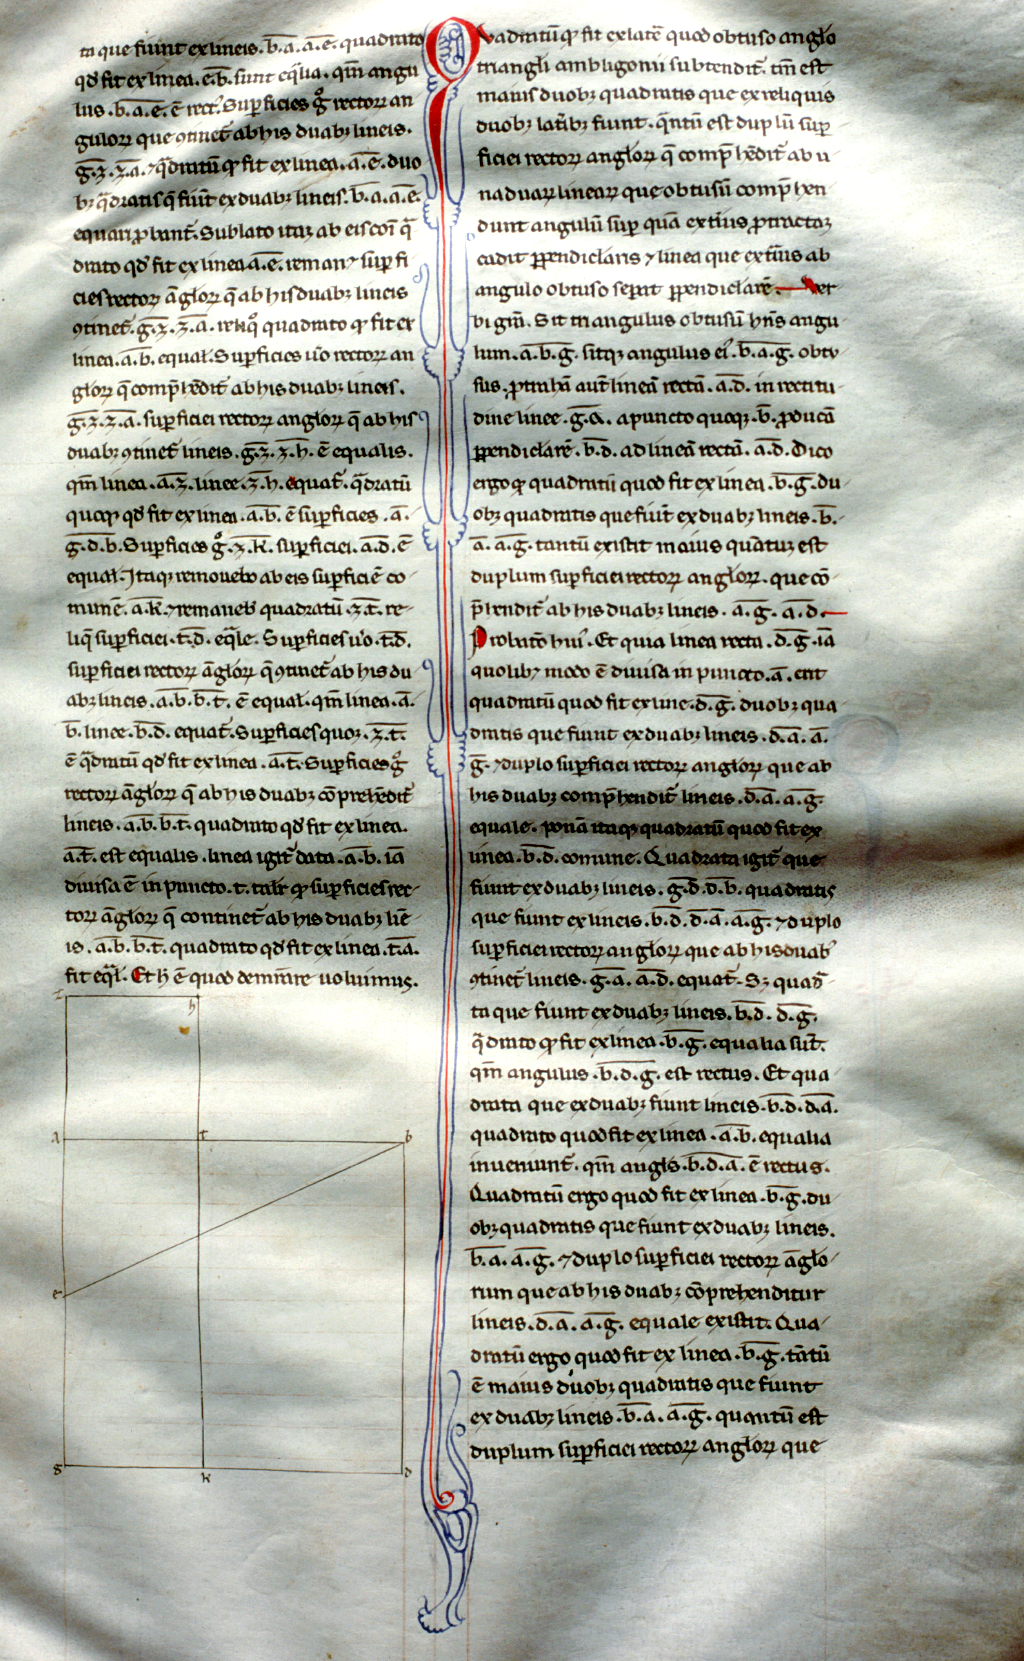 ta que fiunt ex lineis .b̅.a̅.a̅.e̅. quadrato
qđ fit ex linea .e̅.b̅. sunt eq̄lia. qm̄ angu
lus .b̅.a̅.e̅. ē rect᷒. Suꝑficies g̊ rectoꝝ an
guloꝝ que ꝯtinet᷑ ab his duabꝫ lineis.
g̅.z̅.z̅.a̅. ⁊ q̄dratū qđ fit ex linea .a̅.e̅. duo
bꝫ q̄dratis q̄ fiūt ex duabꝫ lineis .b̅.a̅.a̅.e̅.
equari ꝓbant᷑. Sublato itaqꝫ ab eis cōi q̄
drato qđ fit ex linea .a̅.e̅. remanꝫ suꝑfi
cies rectoꝝ āgloꝝ q̄ ab his duabꝫ lineis
ꝯtinet᷑ .g̅.z̅.z̅.a̅. reliq̊ quadrato qđ fit ex
linea .a̅.b̅. equal᷑. Suꝑficies u̾o rectoꝝ an
gloꝝ q̄ comp̄hēdit᷑ ab his duabꝫ lineis.
g̅.z̅.z̅.a̅. suꝑficiei rectoꝝ angloꝝ q̄ ab his
duabꝫ ꝯtinet᷑ lineis .g̅.z̅.z̅.h̅. ē equalis.
qm̄ linea .a̅.z̅. linee .z̅.h̅. equat᷑. q̄dratū
quoqꝫ qđ fit ex linea .a̅.b̅. ē suꝑficies .a̅.
g̅.d̅.b̅. Suꝑficies g̊.z̅.k̅. suꝑficiei .a̅.d̅. ē
equal᷑. Itaqꝫ remouebo ab eis suꝑficiē co
munē .a̅.k̅. ⁊ remaneb᷑ quadratū .z̅.t̅. re
liq̄ suꝑficiei .t̅.d̅. eq̄le. Suꝑficies u̾o .t̅.d̅.
suꝑficiei rectoꝝ āgloꝝ q̄ ꝯtinet᷑ ab his du
abꝫ lineis .a̅.b̅.b̅.t̅. ē equal᷑. qm̄ linea .a̅.
b̅. linee .b̅.d̅. equat᷑. Suꝑficies quoqꝫ .z̅.t̅.
ē q̄dratū qđ fit ex linea .a̅.t̅. Suꝑficies g̊
rectoꝝ āgloꝝ q̄ ab his duabꝫ cōprehēdit᷑
lineis .a̅.b̅.b̅.t̅. quadrato qđ fit ex linea.
a̅.t̅. est equalis. linea igit᷑ data .a̅.b̅. iā
diuisa ē in puncto .t. talr̄ qđ suꝑficies rec
toꝝ āgloꝝ q̄ continet᷑ ab his duabꝫ linē
is .a̅.b̅.b̅.t̅. quadrato qđ fit ex linea .t̅.a̅.
fit eq̄l᷑. Et h̄ ē quod demr̄are uoluimus.
z h
a t b
e
g k d
Quadratū qđ fit ex latē quod obtuso anglo
triangli ambligonii subtendit᷑. tm̄ est
maius duobꝫ quadratis que ex reliquis
duobꝫ latībꝫ fiunt. q̄ntū est duplū suꝑ
ficiei rectoꝝ angloꝝ q̄ comp̄hēdit᷑ ab u
na duaꝝ lineaꝝ que obtusū comp̄hen
dunt angulū suꝑ quā ext̾ius ꝓtractaꝫ
cadit ꝑpendiclaris ⁊ linea que ext̾ius ab
angulo obtuso seꝑat ꝑpendiclarē. Ver
bi grā. Sit triangulus obtusū hn̄s angu
lum .a̅.b̅.g̅. sitqꝫ angulus ei᷒ .b̅.a̅.g̅. obtu
sus. ꝓtrahā aut̄ lineā rectā .a̅.d̅. in rectitu
dine linee .g̅.a̅. a puncto quoqꝫ .b̅. ꝓducā
ꝑpendiclarē .b̅.d̅. ad lineā rectā .a̅.d̅. Dico
ergo qđ quadratū quod fit ex linea .b̅.g̅. du
obꝫ quadratis que fiūt ex duabꝫ lineis .b̅.
a̅. a̅.g̅. tantū existit maius quātuꝫ est
duplum suꝑficiei rectoꝝ angloꝝ. que cō
p̄hendit᷑ ab his duabꝫ lineis .a̅.g̅. a̅.d̅.
Probatō hui᷒. Et quia linea recta .d̅.g̅. iā
quolibꝫ modo ē diuisa in puncto .a̅. erit
quadratū quod fit ex line .d̅.g̅. duobꝫ qua
dratis que fiunt ex duabꝫ lineis .d̅.a̅. a̅.
g̅. ⁊ duplo suꝑficiei rectoꝝ angloꝝ que ab
his duabꝫ comp̄hendit᷑ lineis .d̅.a̅. a̅.g̅.
equale. ponā itaqꝫ quadratū quod fit ex
linea .b̅.d̅. comune. Quadrata igit᷑ que
fiunt ex duabꝫ lineis .g̅.d̅.d̅.b̅. quadratis
que fiunt ex lineis .b̅.d̅. d̅.a̅. a̅.g̅. ⁊ duplo
suꝑficiei rectoꝝ angloꝝ que ab his duab᷒
ꝯtinet᷑ lineis .g̅.a̅. a̅.d̅. equat᷑. Sꝫ quad̄
ta que fiunt ex duabꝫ lineis .b̅.d̅. d̅.g̅.
q̄drato qđ fit ex linea .b̅.g̅. equalia sūt.
qm̄ angulus .b̅.d̅.g̅. est rectus. Et qua
drata que ex duabꝫ fiunt lineis .b̅.d̅.d̅.a̅.
quadrato quod fit ex linea .a̅.b̅. equalia
inueniunt᷑. qm̄ angls .b̅.d̅.a̅. ē rectus.
Quadratū ergo quod fit ex linea .b̅.g̅. du
obꝫ quadratis que fiunt ex duabꝫ lineis.
b̅.a̅. a̅.g̅. ⁊ duplo suꝑficiei rectoꝝ āglo
rum que ab his duabꝫ cōprehenditur
lineis .d̅.a̅. a̅.g̅. equale existit. Qua
dratū ergo quod fit ex linea .b̅.g̅. tātū
ē maius duobꝫ quadratis que fiunt
ex duabꝫ lineis .b̅.a̅. a̅.g̅. quantū est
duplum suꝑficiei rectoꝝ angloꝝ que